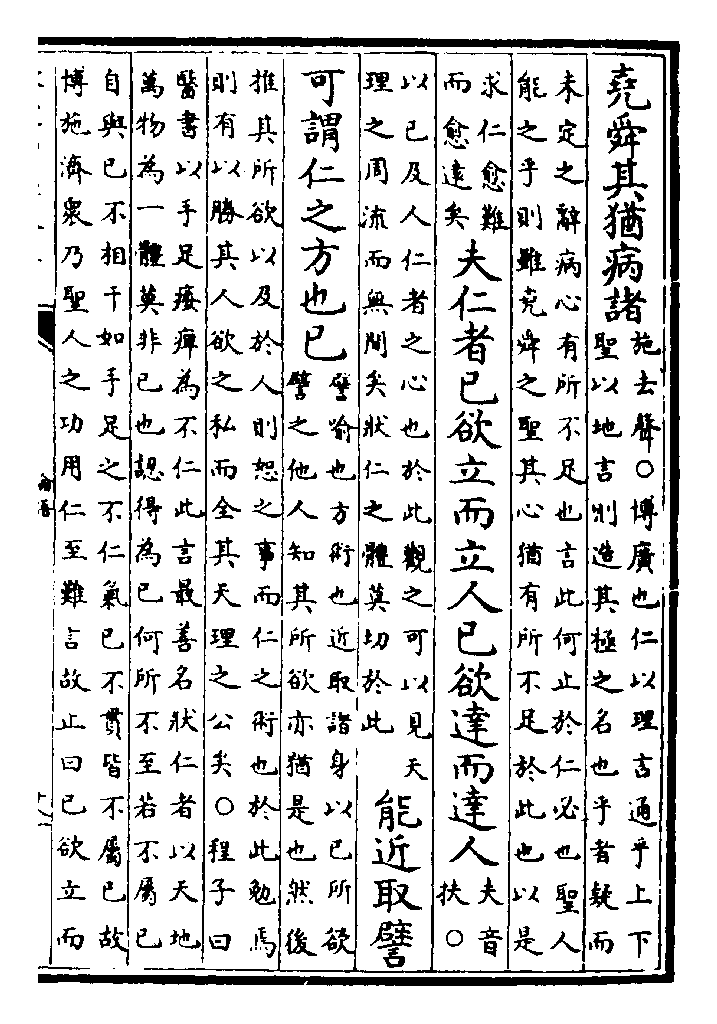 堯舜其猶病諸
施去聲○博廣也仁以理言通乎上下
聖以地言則造其極之名也乎者疑而
未定之辭病心有所不足也言此何止於仁必也聖人
能之乎則雖堯舜之聖其心猶有所不足於此也以是
求仁愈難
而愈遠矣
夫仁者已欲立而立人已欲達而達人
夫音
扶○
以已及人仁者之心也於此觀之可以見天
理之周流而無間矣狀仁之體莫切於此
能近取譬
可謂仁之方也已
譬喻也方術也近取諸身以已所欲
譬之他人知其所欲亦猶是也然後
推其所欲以及於人則恕之事而仁之術也於此勉焉
則有以勝其人欲之私而全其天理之公矣○程子曰
醫書以手足痿痺為不仁此言最善名狀仁者以天地
萬物為一體莫非已也認得為已何所不至若不屬已
自與已不相干如手足之不仁氣已不貫皆不屬已故
博施濟衆乃聖人之功用仁至難言故止曰已欲立而